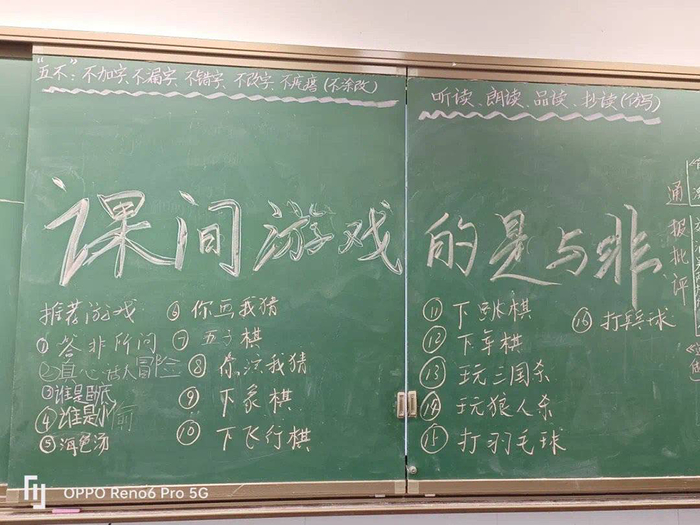 "五不"：不加字、不漏字、不错字、不改字、不疙瘩(不涂改)
听读、朗读、品读、抄读(仿写)
通报批评
课间游戏的是与非
推荐游戏
① 答非所问
② 真心话大冒险
③ 谁是卧底
④ 谁是小偷
⑤ 海龟汤
⑥ 你画我猜
⑦ 五子棋
⑧ 你演我猜
⑨ 下象棋
⑩ 下飞行棋
⑪ 下跳棋
⑫ 下军棋
⑬ 玩三国杀
⑭ 玩狼人杀
⑮ 打羽毛球
⑯ 打乒乓球
OPPO Reno6 Pro 5G